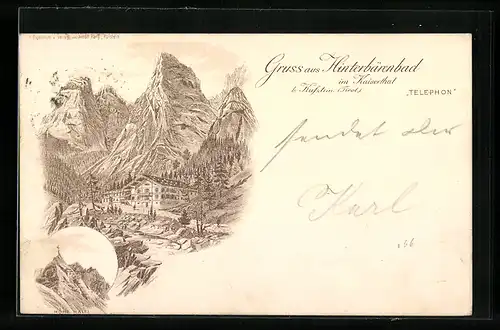 Gruss aus Hinterbärenbad
im Kaiserthal
b. Kufstein Tirols
„TELEPHON“
sendet der
Karl